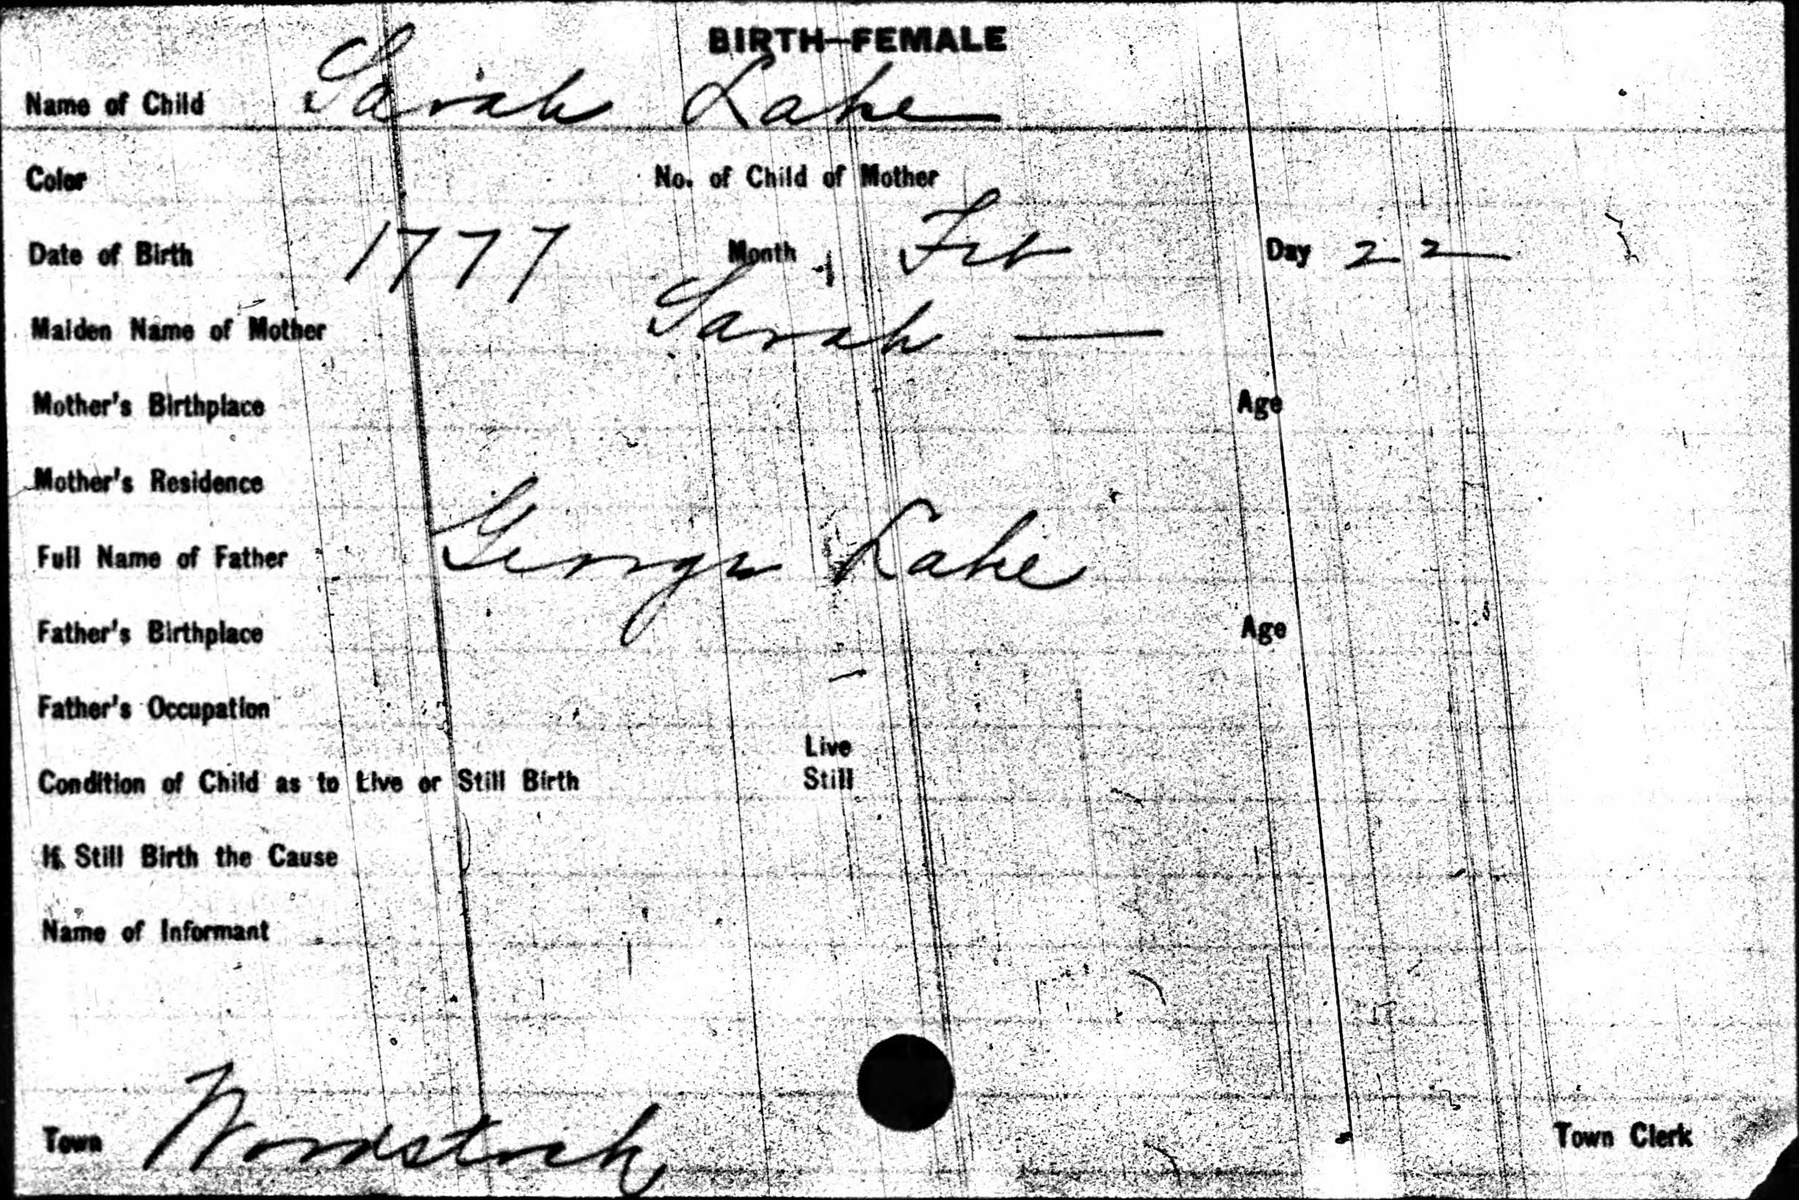 BIRTH—FEMALE
Name of Child Sarah Lake
Color No. of Child of Mother
Date of Birth 1777 Month Feb Day 22
Maiden Name of Mother Sarah —
Mother's Birthplace Age
Mother's Residence
Full Name of Father George Lake
Father's Birthplace Age
Father's Occupation
Live
Condition of Child as to Live or Still Birth Still
If Still Birth the Cause
Name of Informant
Town Woodstock Town Clerk